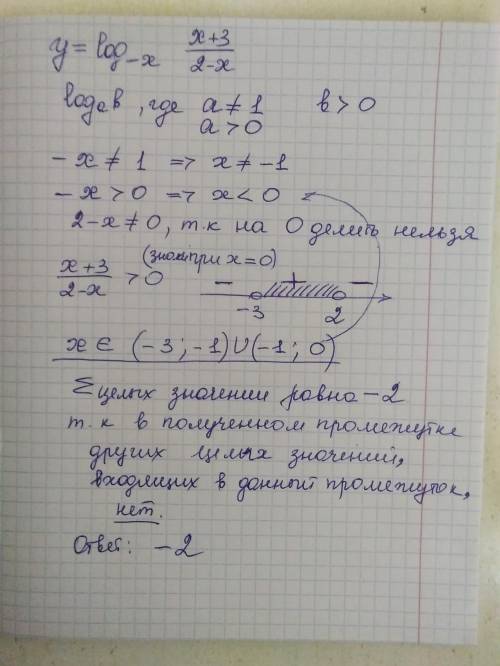 y = log₋ₓ (x+3)/(2-x)
logₐb, где a ≠ 1 b > 0
a > 0
-x ≠ 1 => x ≠ -1
-x > 0 => x < 0
2-x ≠ 0, т.к на 0 делить нельзя
(x+3)/(2-x) > 0 (знаки при x=0)
- + -
-3 2
x ∈ (-3; -1) ∪ (-1; 0)
Σ целых значении равна -2
т.к в полученном промежутке
других целых значений,
входящих в данный промежуток,
нет.
Ответ: -2